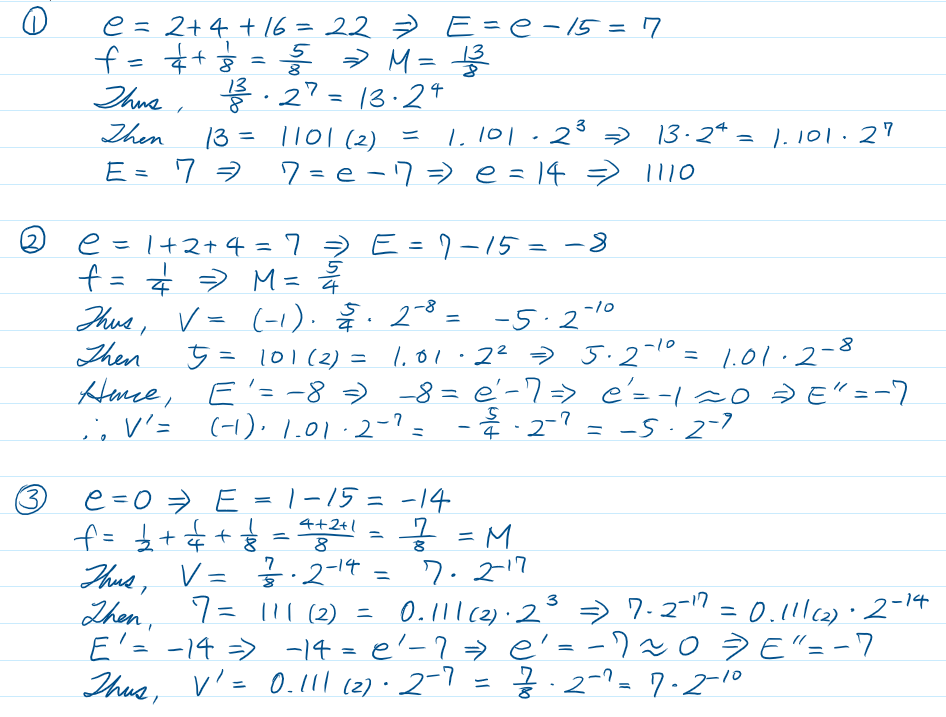 ① e = 2+4+16 = 22 ⇒ E = e - 15 = 7
f = 1/4 + 1/8 = 5/8 ⇒ M = 13/8
Thus, 13/8 · 2^7 = 13 · 2^4
Then 13 = 1101 (2) = 1.101 · 2^3 ⇒ 13 · 2^4 = 1.101 · 2^7
E = 7 ⇒ 7 = e - 7 ⇒ e = 14 ⇒ 1110
② e = 1+2+4 = 7 ⇒ E = 7 - 15 = -8
f = 1/4 ⇒ M = 5/4
Thus, V = (-1) · 5/4 · 2^-8 = -5 · 2^-10
Then 5 = 101 (2) = 1.01 · 2^2 ⇒ 5 · 2^-10 = 1.01 · 2^-8
Hence, E' = -8 ⇒ -8 = e' - 7 ⇒ e' = -1 ≈ 0 ⇒ E'' = -7
∴ V' = (-1) · 1.01 · 2^-7 = - 5/4 · 2^-7 = -5 · 2^-9
③ e = 0 ⇒ E = 1 - 15 = -14
f = 1/2 + 1/4 + 1/8 = 4+2+1/8 = 7/8 = M
Thus, V = 7/8 · 2^-14 = 7 · 2^-17
Then, 7 = 111 (2) = 0.111 (2) · 2^3 ⇒ 7 · 2^-17 = 0.111 (2) · 2^-14
E' = -14 ⇒ -14 = e' - 7 ⇒ e' = -7 ≈ 0 ⇒ E'' = -7
Thus, V' = 0.111 (2) · 2^-7 = 7/8 · 2^-7 = 7 · 2^-10